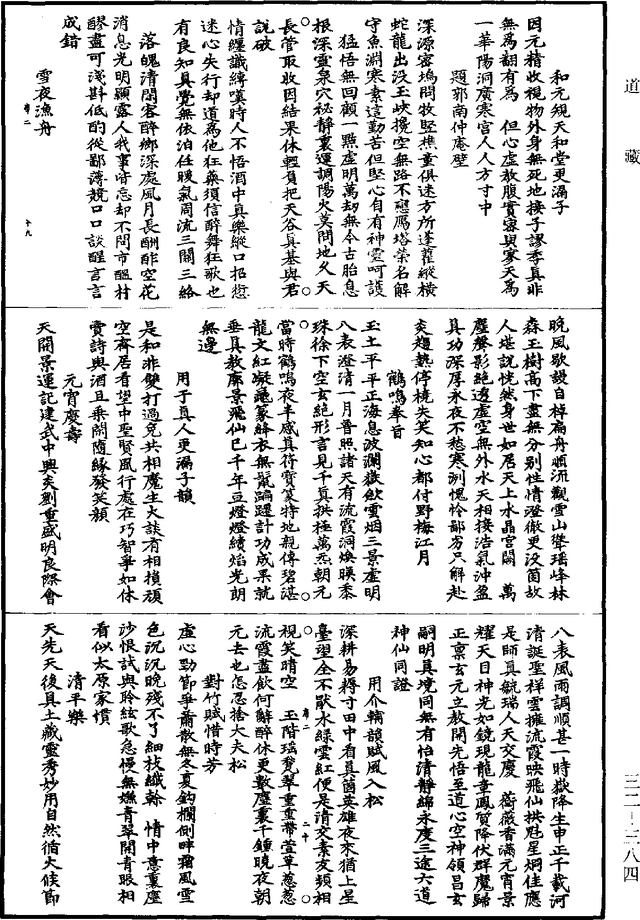 道藏
和元規天和堂更漏子
因元精收視物外身無死地接子謬季真非
無為翻有為　但心虛教腹實寥與寥天為
一華陽洞廣寒宮人人方寸中
題郭南仲庵壁
深源密塢問牧堅樵童俱迷方所蓬藋縱橫
蛇龍出沒玉峽攙空無路不戀鴈塔榮名解
守魚淵寒素這勤苦但堅心自有神靈呵護
猛悟無回顧一點虛明萬劫無今古胎息
根深靈泉穴祕靜裏運調陽火莫問地久天
長管取收因結果休輕負把天谷真基與君
說破
情纏識縛嘆時人不悟酒中真樂縱口招愆
迷心失行却道為他狂藥須信醉舞狂歌也
有良知真覺無依泊任暖氣周流三關三絡
落魄清閑客醉鄉深處風月長酬酢空花
消息光明顯露人我事皆忘却不問市醞村
醪盡可淺斟低酌從鄙薄競口口談醒言言
成錯
雪夜漁舟
晚風歇謾自棹扁舟順流觀雪山聳瑤峰林
森玉樹高下盡無分別性情澄徹更沒箇故
人堪說恍然身世如居天上水晶宮闕　萬
塵聲影絕透虛空無外水天相接浩氣沖盈
真功深厚永夜不愁寒冽愧怜鄙劣只解赴
炎趨熱停橈失笑知心都付野梅江月
鶴鳴奉旨
玉土平平正海息波瀾嶽歛雲烟三景虛明
八表澄清一月普照諸天有流霞洞煥暎黍
珠徐下空玄絕形言見千真拱極萬炁朝元
當時鶴鳴夜半感真符寶篆特地親傳碧湛
龍文紅凝龜篆絳衣無䰐躋躔計功成果就
垂真教廓景飛仙已千年豆燈燈續焰光朗
無邊
用于真人更漏子韻
是和非雙打過免共相魔生火談有相損頑
空齊居看望中聖賢風行處在巧智爭如休
賣詩與酒且乘閑隨緣發笑顏
元宵慶壽
天開景運記建武中興炎劉重盛明良際會
八表風雨調順甚一時嶽降生申正千載河
清誕聖祥雲擁流霞映飛仙拱慰星烱佳應
是師真毓瑞人天交慶　薔薇香滿元宵景
耀天目神光如鏡現龍章鳳質降伏群魔歸
正稟玄元立教開先悟至道心空神領昌玄
嗣明真境同無有怡清靜綿永度三途六道
神仙同證
用介輔韻賦風入松
深耕易耨寸田中看真箇英雄夜來猶上星
臺望全不猒水綠雲紅便是清交素友頻相
視笑晴空　玉階瑤甃翠重重帶萱草蔥蔥
流霞盡飲何辭醉休更數塵裏千鍾曉夜朝
元去也怎怎捨大夫松
對竹賦惜時芳
虛心勁節爭蕭散無冬夏鈎欄側畔霜風雪
色沉沉晚殘不了細枝纖榦　情中意裏塵
沙恨試與聆絃歌急慢無嫌青翠開青眼相
看似太原家慣
清平樂
天先天後真土藏靈秀妙用自然循火候節
三二－三八四